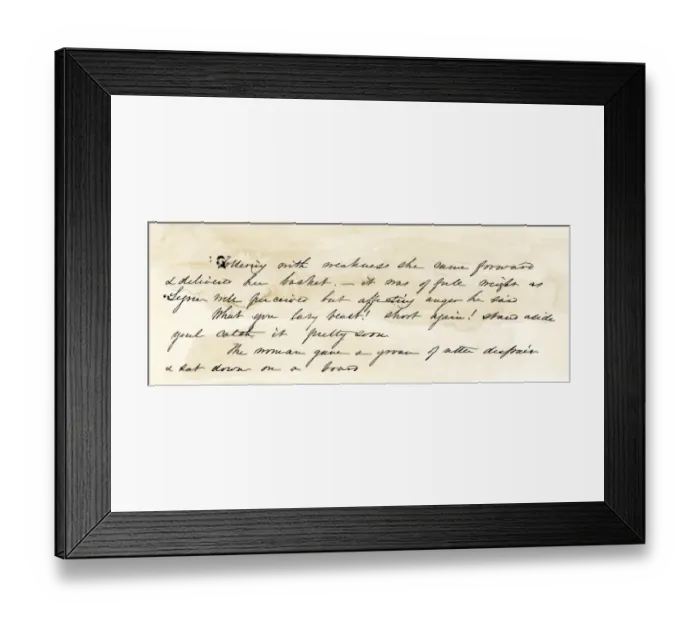 Tottering with weakness she came forward
& delivered her basket. — it was of full weight as
Legree well perceived but affecting anger he said
What you lazy beast! short again! stand aside
youl catch it pretty soon
The woman gave a groan of utter despair
& sat down on a board